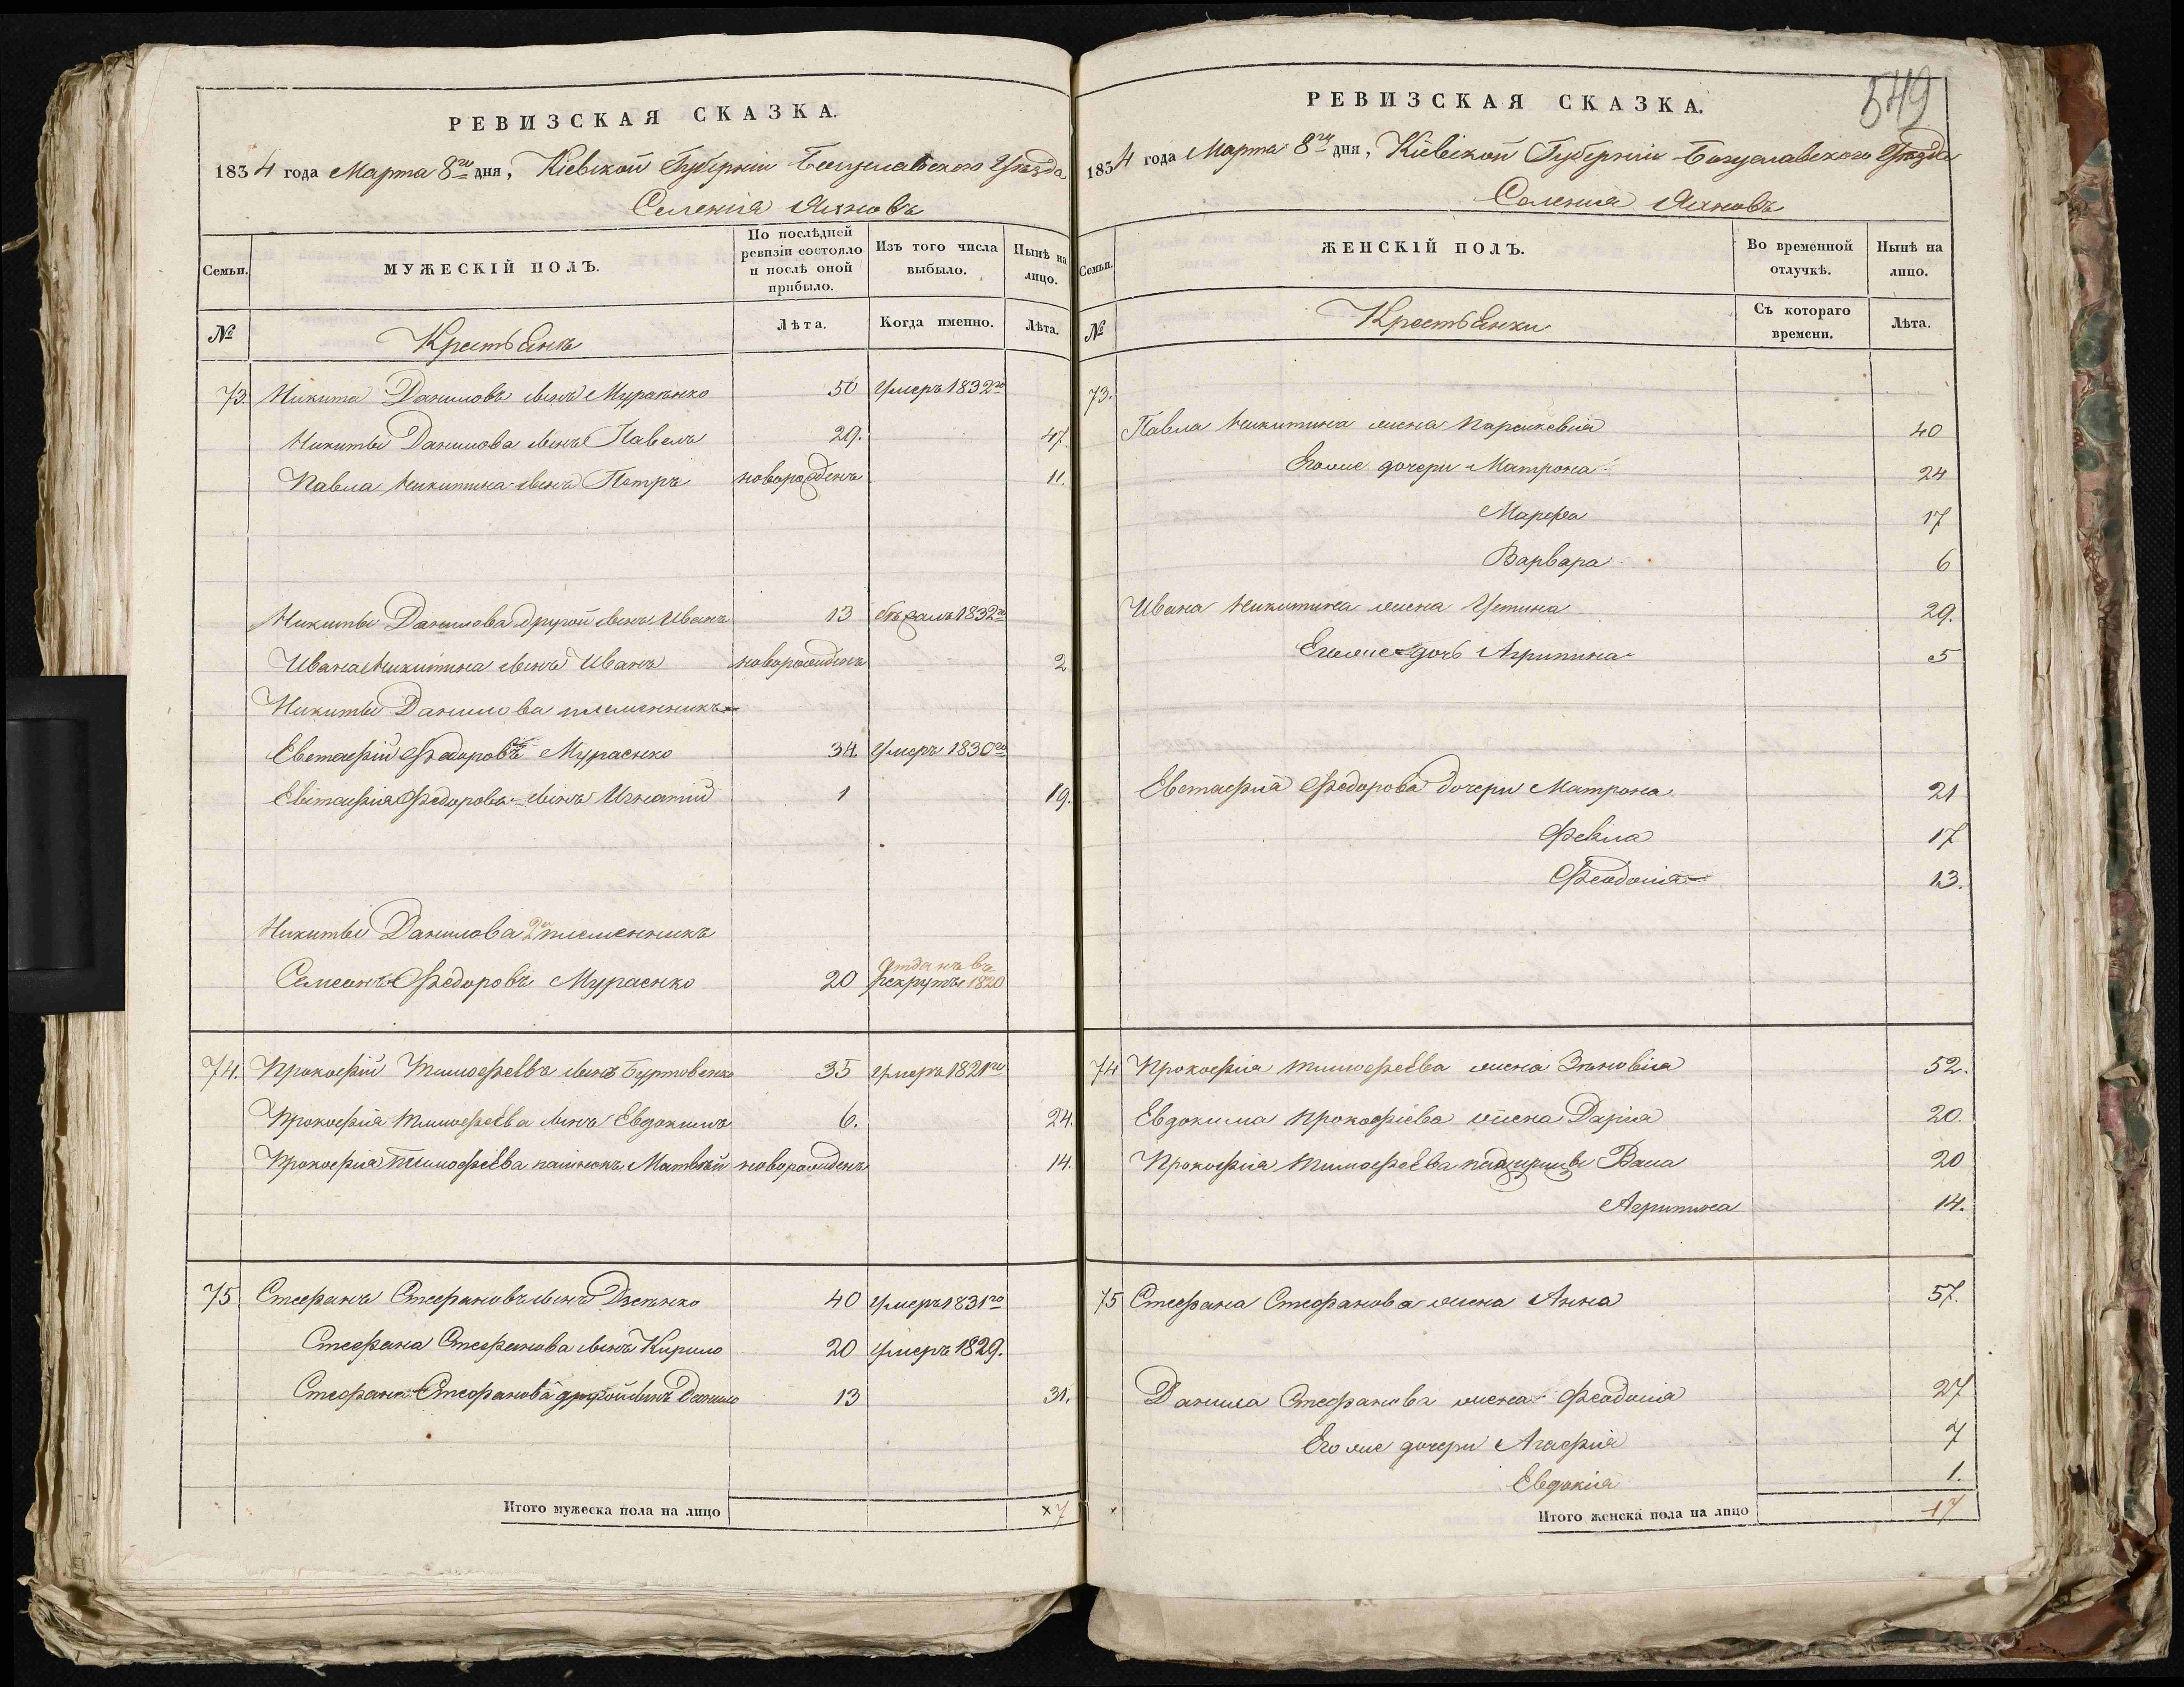 РЕВИЗСКАЯ СКАЗКА.
1834 года Марта 8го дня, Кіевской Губерніи Богуславского Уѣзда
Селенія Яхновъ
Семьи.
МУЖЕСКІЙ ПОЛЪ.
По послѣдней ревизіи состояло и послѣ оной прибыло.
Изъ того числа выбыло.
Нынѣ на лицо.
№
Крестьянъ
Лѣта.
Когда именно.
Лѣта.
73. Никита Даниловъ сынъ Мураенко 50 Умеръ 1832го
Никиты Данилова сынъ Павелъ 29. 47.
Павла Никитина сынъ Петръ новорожденъ 11.
Никиты Данилова другой сынъ Иванъ 13 бѣжалъ 1832го
Ивана Никитина сынъ Иванъ новорожденъ 2
Никиты Данилова племенникъ
Евстафій Федоровъ Мураенко 34. Умеръ 1830го
Евстафія Федорова сынъ Игнатій 1 19.
Никиты Данилова 2й племенникъ
Семеонъ Федоровъ Мураенко 20 Отданъ въ рекруты 1820
74. Прокофій Тимофеевъ сынъ Буртовенко 35 умеръ 1821го
Прокофія Тимофеева сынъ Евдокимъ 6. 24.
Прокофія Тимофеева Матвѣй новорожденъ 14.
75 Стефанъ Стефановъ сынъ 40 умеръ 1831го
Стефана Стефанова сынъ Кирило 20 умеръ 1829.
Стефана Стефанова другой сынъ Данило 13 31.
Итого мужеска пола на лицо ×7
549
РЕВИЗСКАЯ СКАЗКА.
1834 года Марта 8го дня, Кіевской Губерніи Богуславского Уѣзда
Селенія Яхновъ
Семьи.
ЖЕНСКІЙ ПОЛЪ.
Во временной отлучкѣ.
Нынѣ на лицо.
№
Крестьянки
Съ котораго времени.
Лѣта.
73.
Павла Никитина жена Параскевія 40
Егоже дочери Матрона 24
Марфа 17
Варвара 6
Ивана Никитина жена Устина 29.
Егоже дочь Агрипина 5
Евстафія Федорова дочери Матрона 21
Фекла 17
Феодосія 13.
74 Прокофія Тимофеева жена Зѣновія 52.
Евдокима Прокофіева жена Дарія 20.
Прокофія Тимофеева падчерицы Васа 20
Агрипина 14.
75 Стефана Стефанова жена Анна 57.
Данила Стефанова жена Феодосія 27
Его же дочери Агафія 7
Евдокія 1.
Итого женска пола на лицо 17